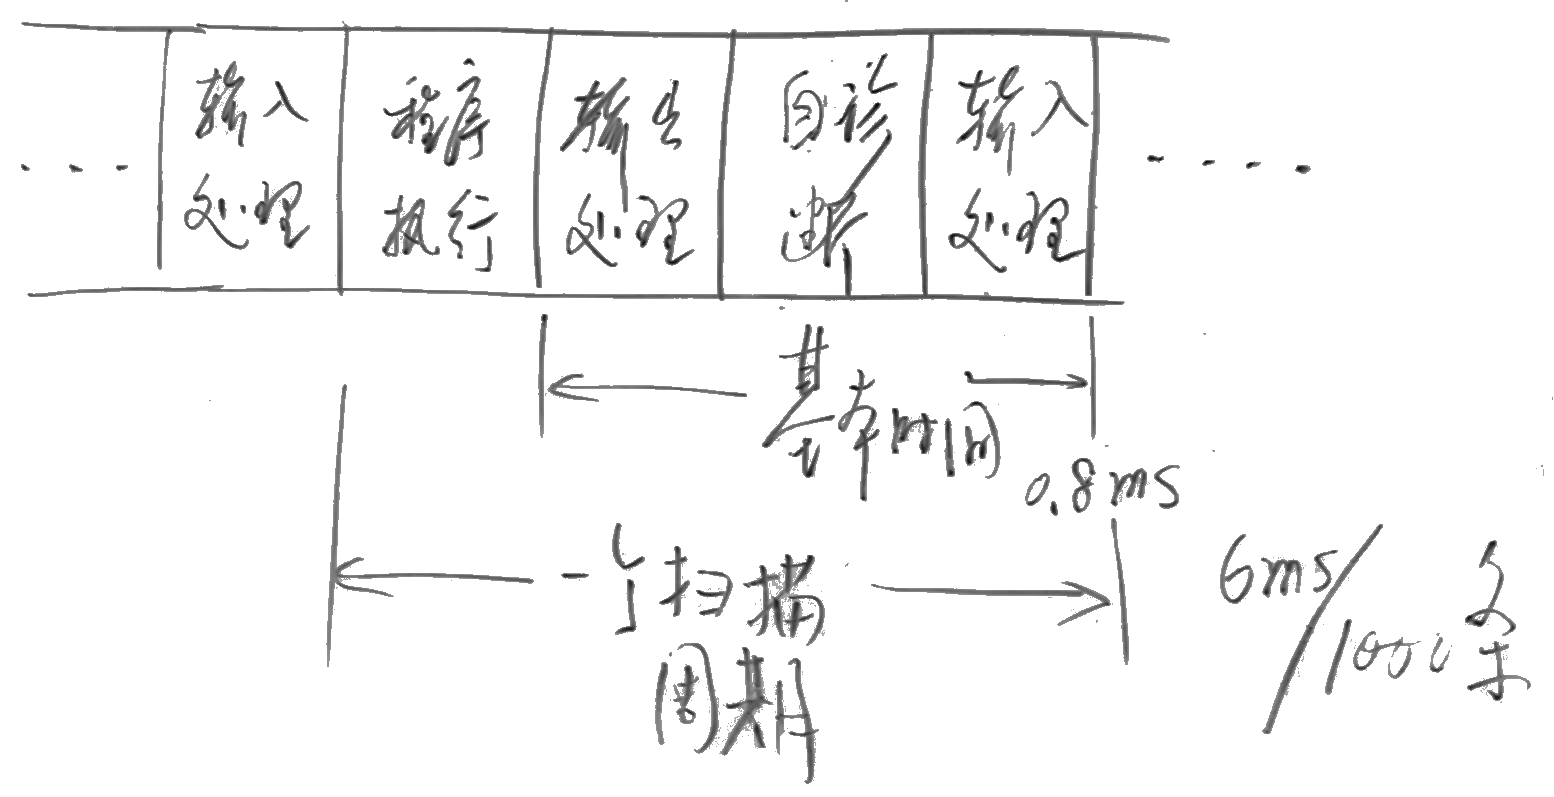 ... 输入处理 程序执行 输出处理 自诊断 输入处理 ....
基本时间
0.8ms
一个扫描
周期
6ms/1000条